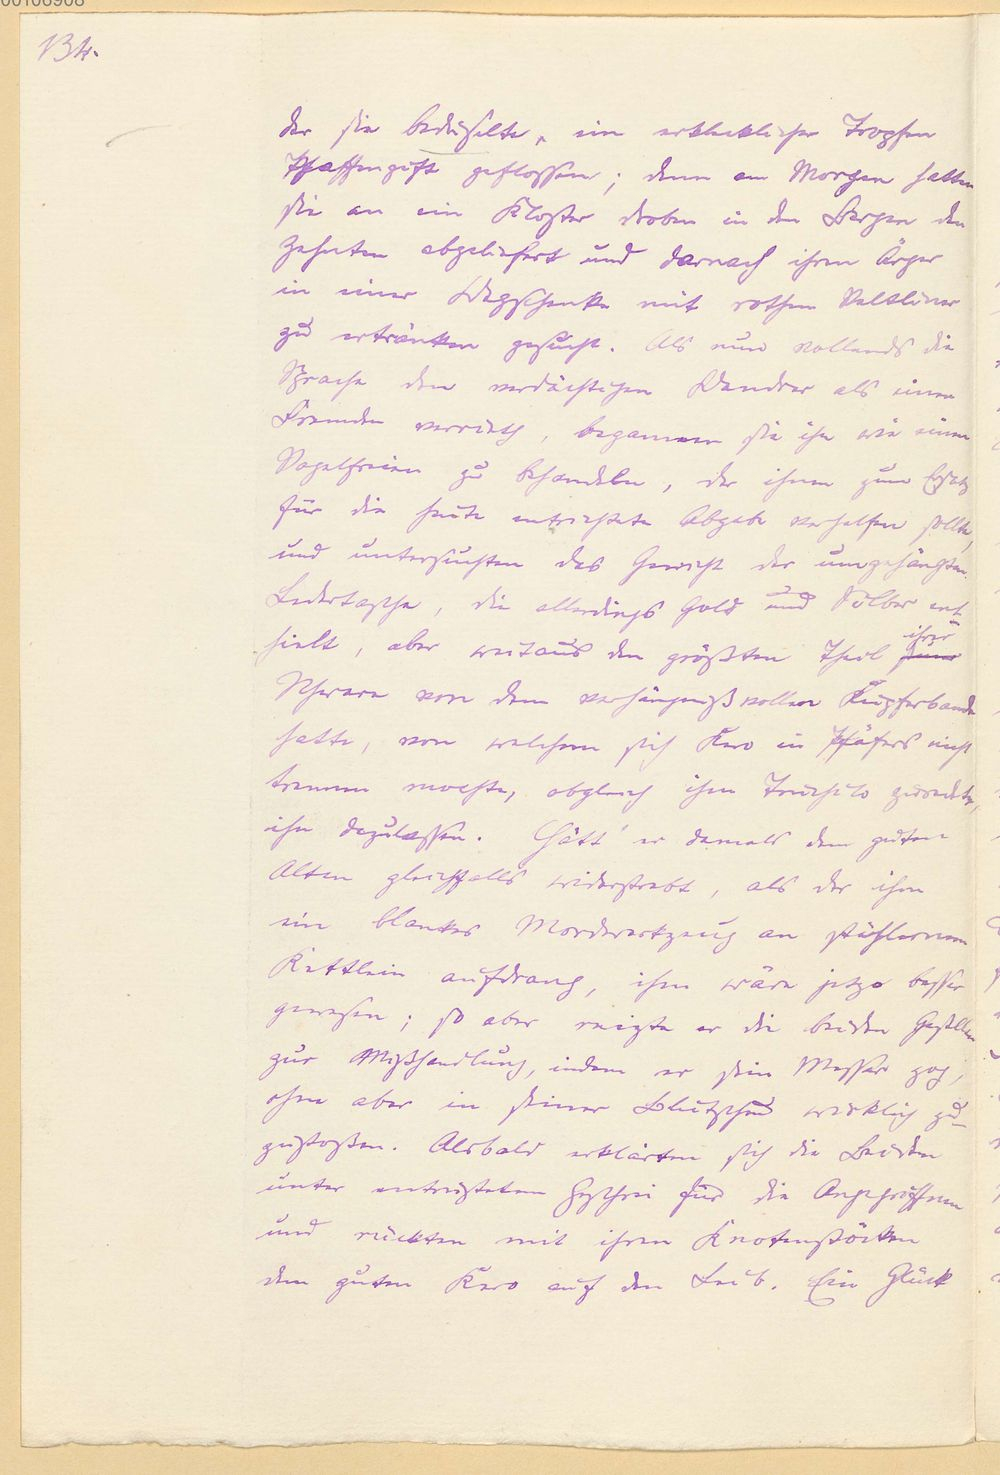 00106908
134.
der sie beduselte, ein erklecklicher Tropfen
Pfaffengift geflossen; denn am Morgen hatten
sie an ein Kloster droben in den Bergen den
Zehnten abgeliefert und darnach ihren Ärger
in einer Wegschenke mit rothem Veltliner
zu ertränken gesucht. Als nun vollends die
Sprache den verdächtigen Wandrer als einen
Fremden verrieth, begannen sie ihn wie einen
Vogelfreien zu behandeln, der ihnen zum Ersatz
für die heute entrichtete Abgabe verhelfen sollte,
und untersuchten das Gewicht der umgehängten
Ledertasche, die allerdings Gold und Silber ent
hielt, aber weitaus den größten Theil ihrer
Schwere von dem verhängnißvollen Kupferbande
hatte, von welchem sich Kero in Pfäfers nicht
trennen mochte, obgleich ihm zuredete,
ihn dazulassen. Hätt' er damals dem guten
Alten gleichfalls widerstrebt, als der ihm
ein blankes Mordwerkzeug an stählernem
Kettlein aufdrang, ihm wäre jetzo besser
gewesen; so aber reizte er die beiden Gesellen
zur Mißhandlung, indem er sein Messer zog,
ohne aber in seiner Blutscheu wirklich zu-
zustoßen. Alsbald erklärten sich die Beiden
unter entrüstetem Geschrei für die Angegriffnen
und rückten mit ihren Knotenstöcken
dem guten Kero auf den Leib. Ein Glück